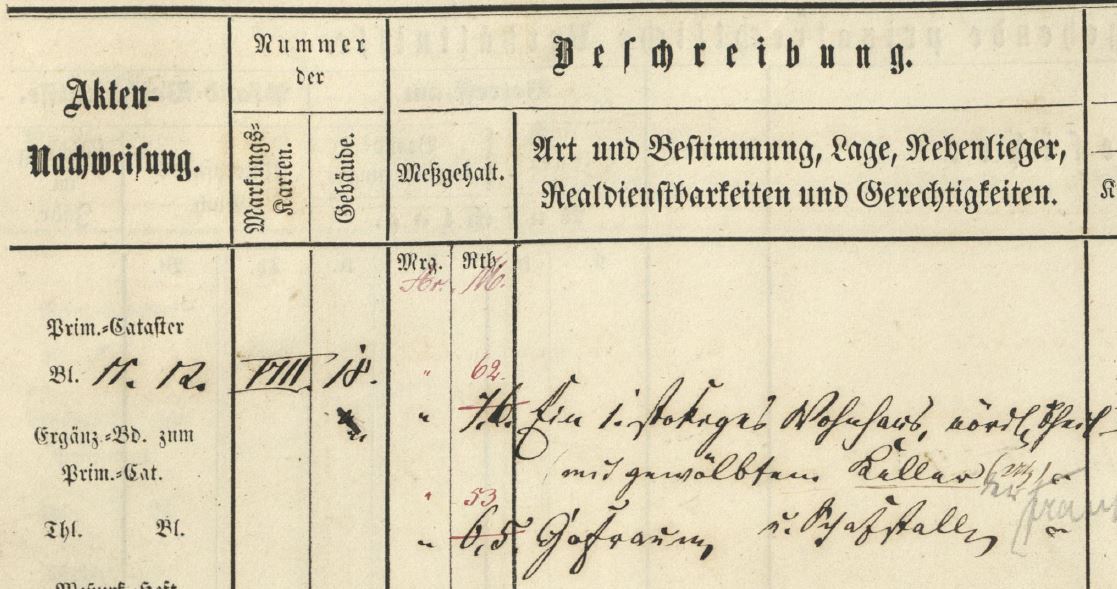 Akten-
Nachweisung.
Nummer
der
Markungs-
Karten.
Gebäude.
Beschreibung.
Meßgehalt.
Art und Bestimmung, Lage, Nebenlieger,
Realdienstbarkeiten und Gerechtigkeiten.
Mrg. Rth.
Ar. M.
Prim.-Cataster
Bl. 11. 12. VIII. 18. " 62.
" 7,6. Ein 1. stokiges Wohnhaus, nördl. Theil
Ergänz.-Bd. zum
Prim.-Cat.
mit gewölbtem Keller
" 53
Thl. Bl.
" 6,5. Hofraum, u. Schafstall,